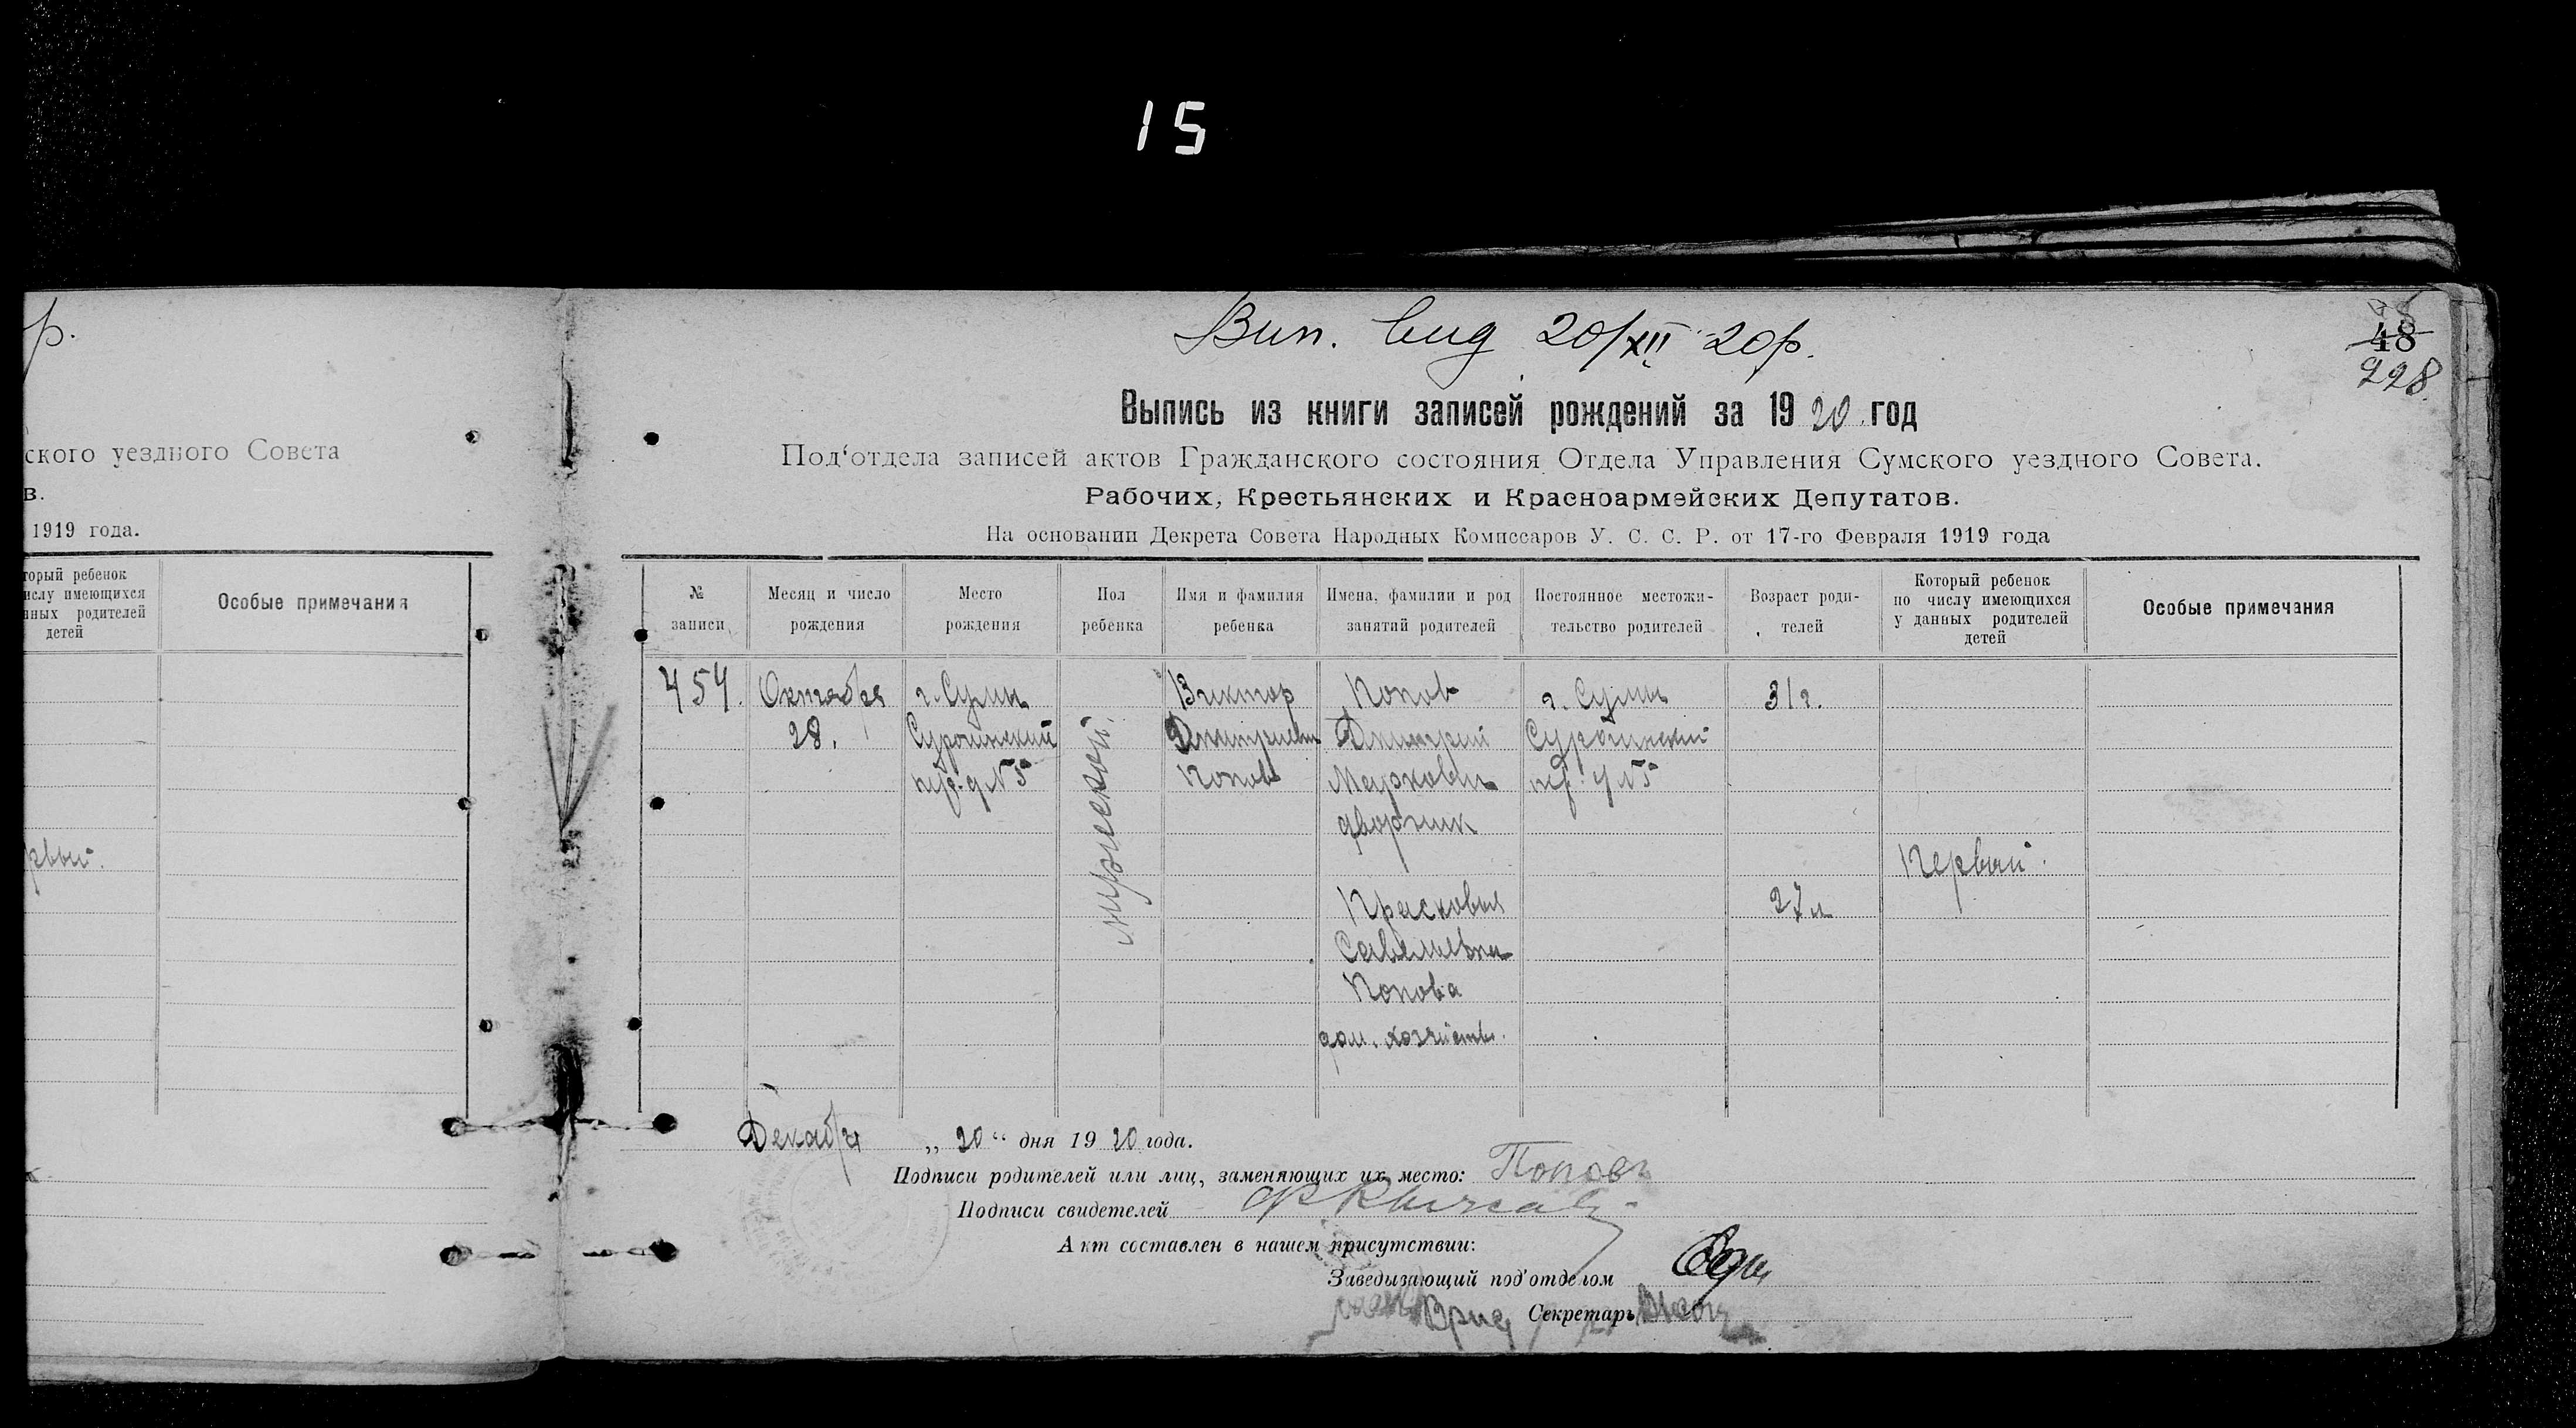 15
р.
Вип. вид 20/XII 20р.
48
228
ского уездного Совета
в.
1919 года.
торый ребенок
ислу имеющихся
нных родителей
детей
Особые примечания
рвый.
Выпись из книги записей рождений за 1920 год
Под‘отдела записей актов Гражданского состояния Отдела Управления Сумского уездного Совета.
Рабочих, Крестьянских и Красноармейских Депутатов.
На основании Декрета Совета Народных Комиссаров У. С. С. Р. от 17-го Февраля 1919 года
№ записи
Месяц и число рождения
Место рождения
Пол ребенка
Имя и фамилия ребенка
Имена, фамилии и род занятий родителей
Постоянное местожи-тельство родителей
Возраст роди-телей
Который ребенок по числу имеющихся у данных родителей детей
Особые примечания
454.
Октября
28.
г. Сумы
Суромский
д №5
мужеской
Виктор
Дмитриевич
Попов
Попов
Дмитрий
Маркович
дворник
Прасковья
Савельевна
Попова
дом. хозяйств.
г. Сумы
Суромский
д №5
31 г.
27 л
Первый.
Декабря „20“ дня 1920 года.
Подписи родителей или лиц, заменяющих их место: Попов
Подписи свидетелей
Акт составлен в нашем присутствии:
Заведывающий под'отделом
Врид Секретарь